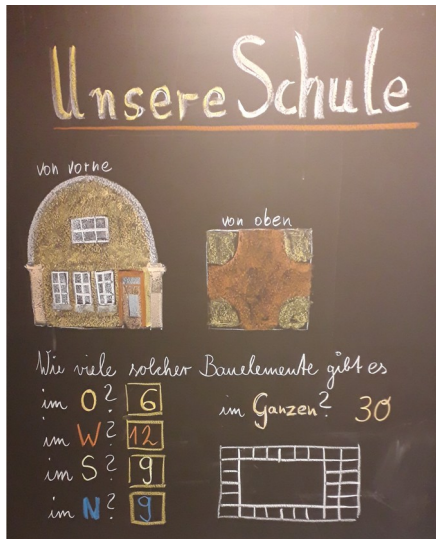 Unsere Schule
von vorne
von oben
Wie viele solcher Bauelemente gibt es
im O? 6
im W? 12
im S? 9
im N? 9
im Ganzen? 30